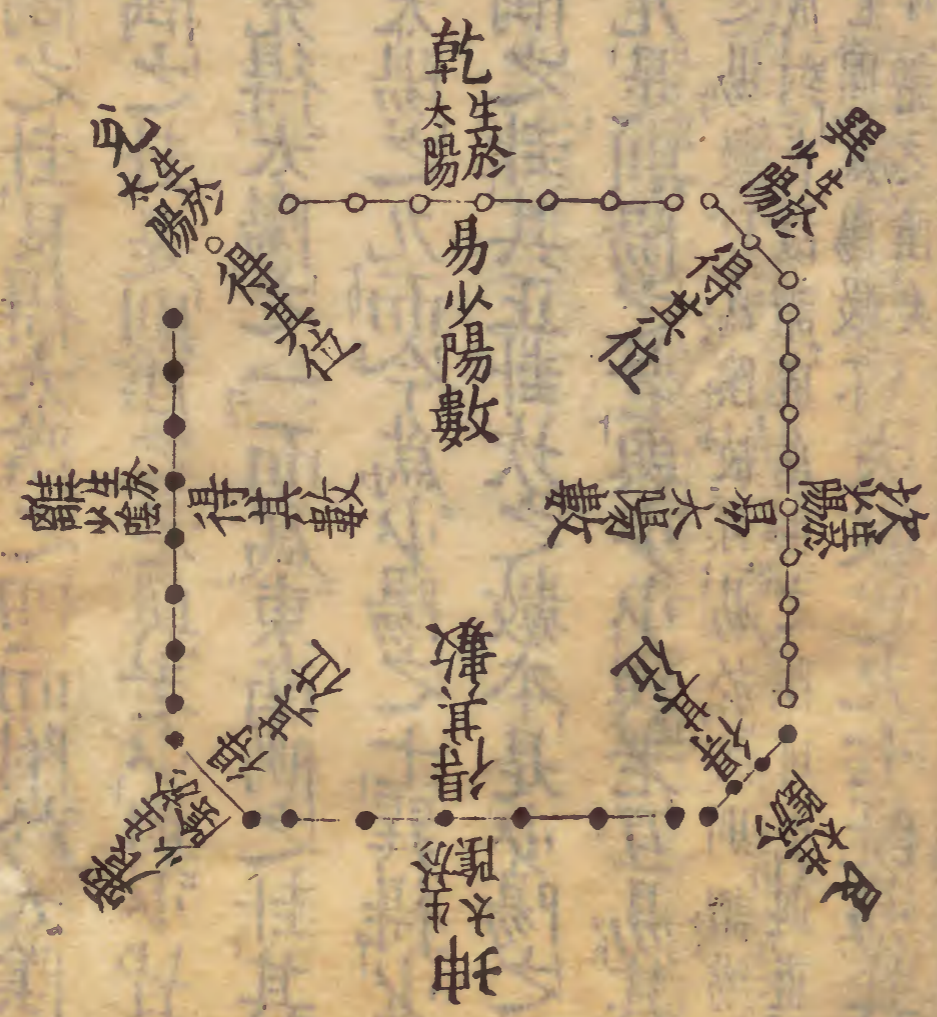 乾
生於
太陽
易少陽數
巽
生於
少陽
得其位
坎
生於
少陽
易太陽數
艮
生於
太陰
得其位
坤
生於
太陰
得其數
震
生於
少陰
得其位
離
生於
少陰
得其數
兌
生於
太陽
得其位